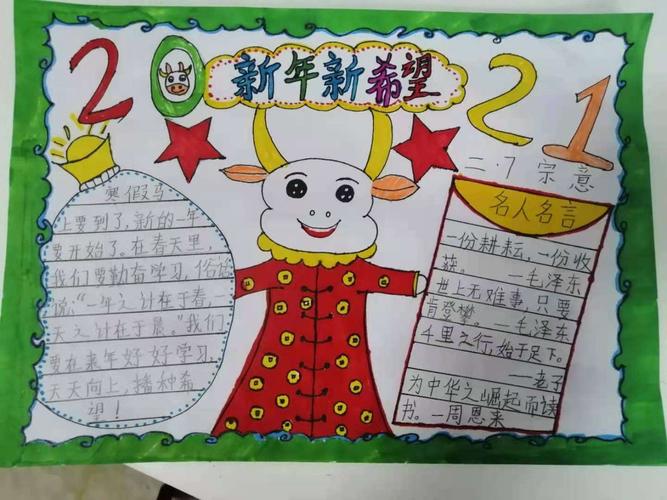 2021
新年新希望
二.7 宗意
寒假马
上要到了,新的一年
要开始了。在春天里,
我们要勤奋学习,俗话
说:“一年之计在于春,一
天之计在于晨。”我们
要在来年好好学习,
天天向上,播种希
望!
名人名言
一份耕耘,一份收
获。 —毛泽东
世上无难事,只要
肯登攀。—毛泽东
千里之行,始于足下。
—老子
为中华之崛起而读
书。—周恩来